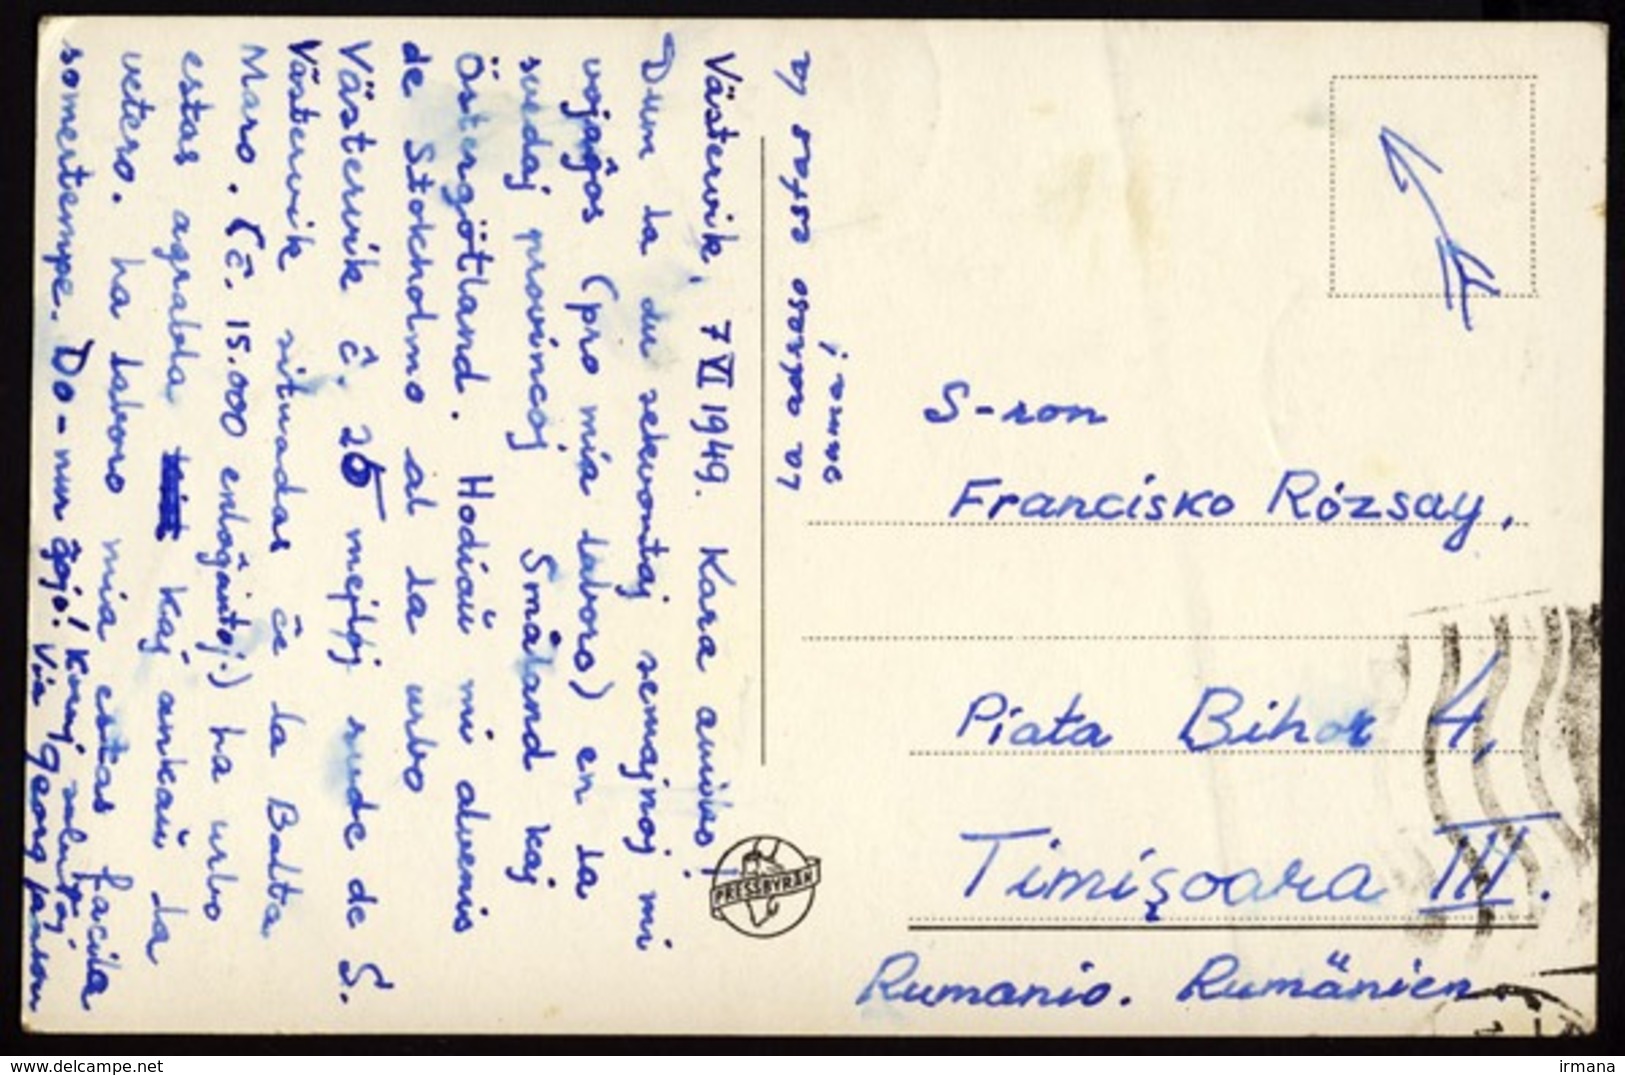 Västervik, 7 VI 1949. Kara amiko!
Dum la du sekvontaj semajnoj mi
vojaĝos (pro mia laboro) en la
svedaj provincoj Småland kaj
Östergötland. Hodiaŭ mi alvenis
de Stokholmo al la urbo
Västervik ĉ. 25 mejloj sude de S.
Västervik situadas ĉe la Balta
Maro. (ĉ. 15.000 enloĝantoj.) La urbo
estas agrabla kaj ankaŭ la
vetero. La laboro mia estas facila
somertempe. Do-nur ĝojo! Kunaj salutoj
Via Georg
La adreso estas la
sama!
S-ron
Francisko Rózsay,
Piata Bihor 4,
Timişoara III.
Rumanio. Rumänien
PRESSBYRÅN
delcampe.net
irmana